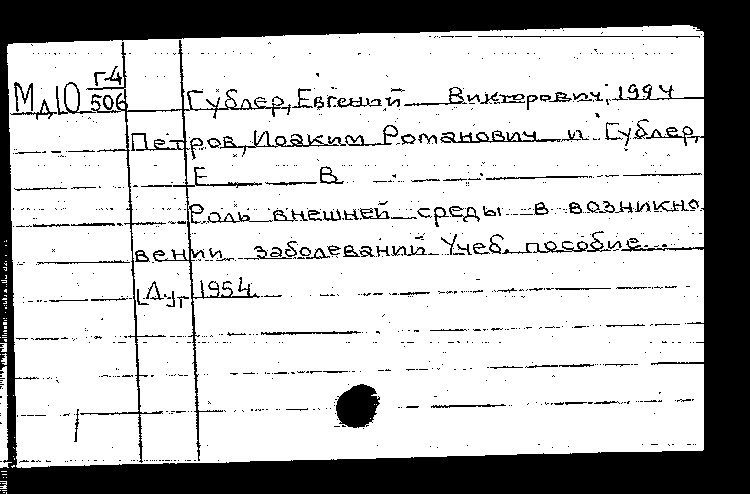 МдЮ Г-4/506 Гублер, Евгений Викторович, 1994
Петров, Иоаким Романович и Гублер,
Е В
Роль внешней среды в возникно
вении заболеваний Учеб. пособие...
[Л.], 1954.